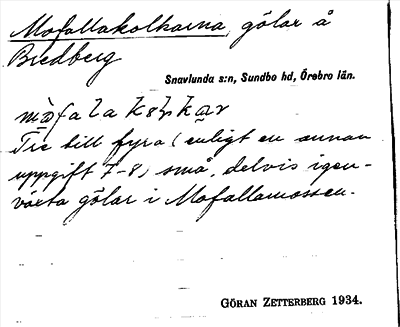 Mofallakolkarna, gölar å
Bredberg
Snavlunda s:n, Sundbo hd, Örebro län.
Tre till fyra (enligt en annan
uppgift 7-8) små, delvis igen-
växta gölar i Mofallamossen.
GÖRAN ZETTERBERG 1934.